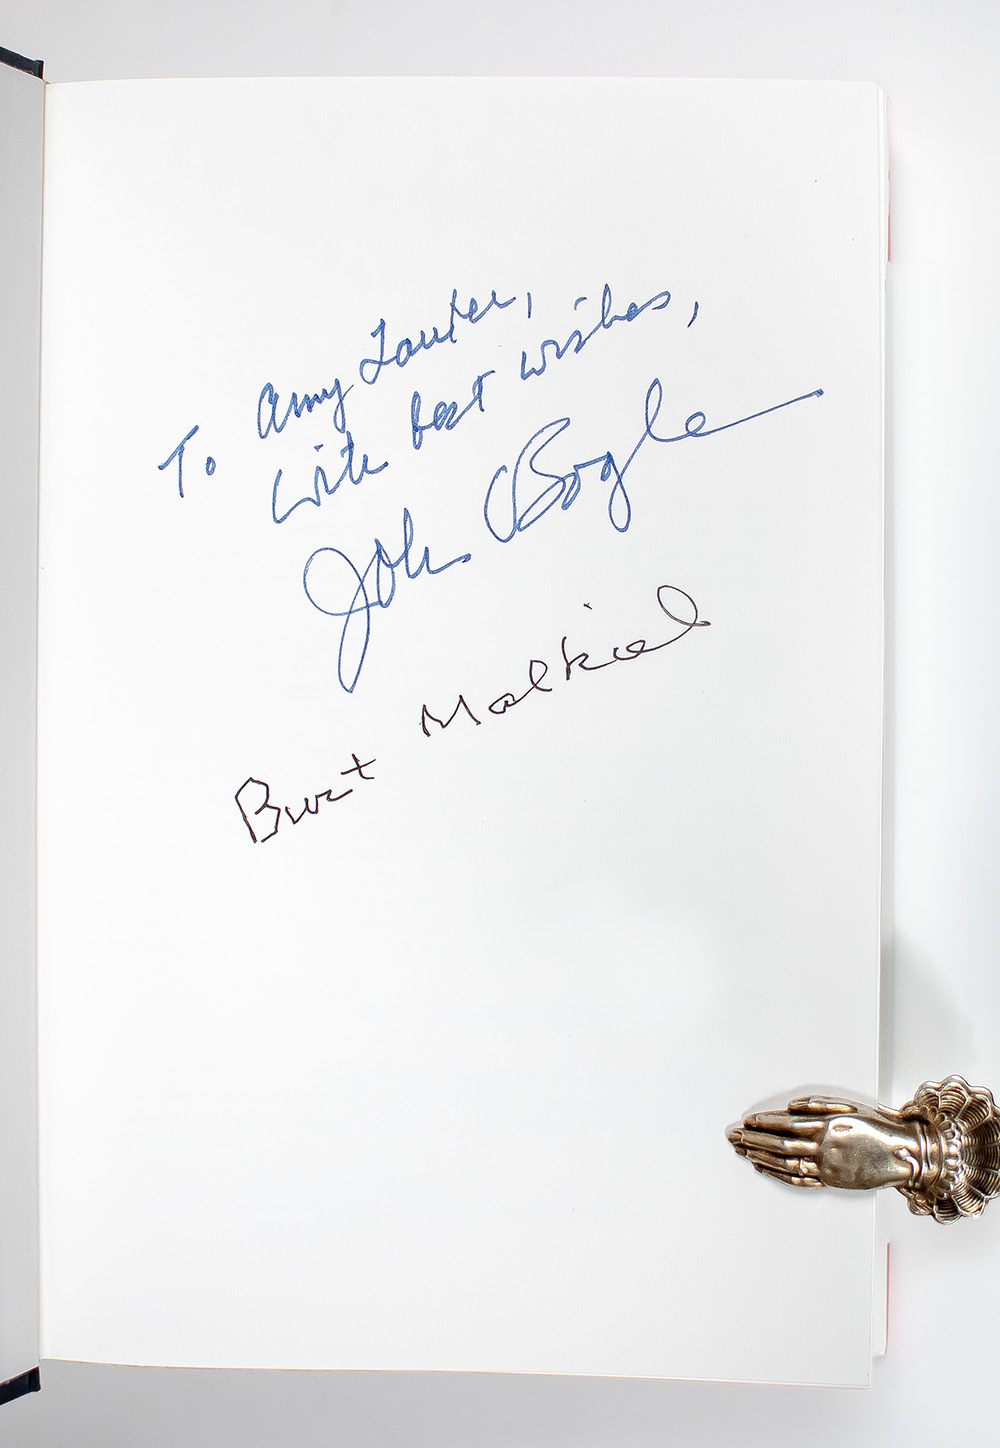 To Amy Lauter,
with best wishes,
John Bogle
Burt Malkiel